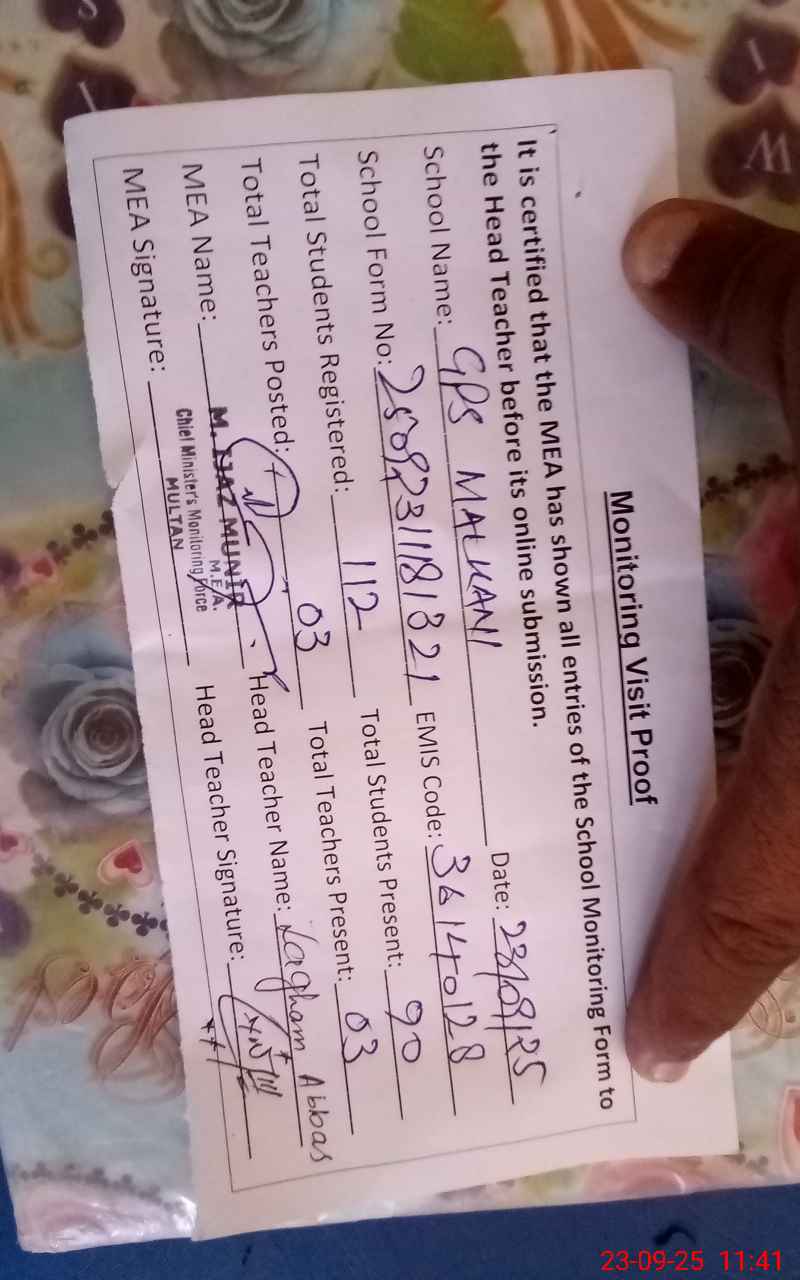 Monitoring Visit Proof
It is certified that the MEA has shown all entries of the School Monitoring Form to
the Head Teacher before its online submission.
School Name: GPS MALKANI Date: 23/09/25
School Form No: EMIS Code: 36140128
Total Students Registered: 112 Total Students Present: 90
Total Teachers Posted: 03 Total Teachers Present: 03
MEA Name: M. IJAZ MUNIR Head Teacher Name: Abbas
M.E.A.
Chief Minister's Monitoring Force
MULTAN
MEA Signature: Head Teacher Signature:
23-09-25 11:41